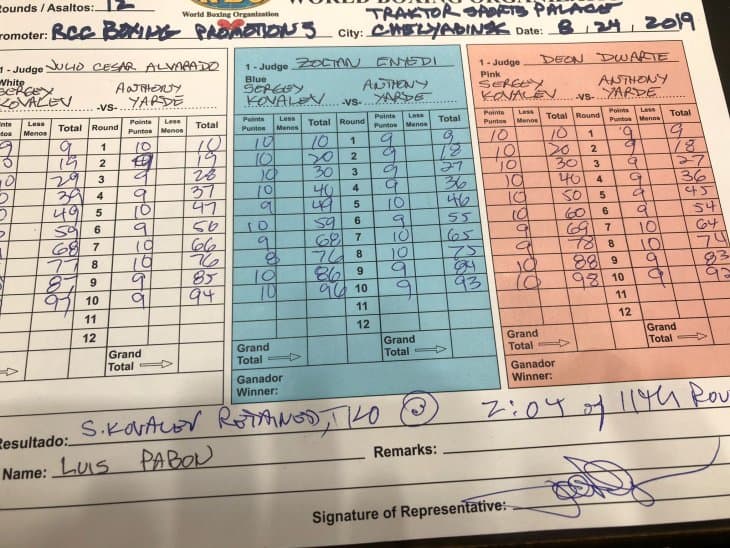 ounds / Asaltos: 12
World Boxing Organization
WORLD BOXING ORGANIZATION
romoter: RCC BOXING PROMOTIONS
City: TRAKTOR SPORTS PALACE
CHELYABINSK Date: 8, 24, 2019
1 - Judge JULIO CESAR ALVARADO
White
SERGEY KOVALEV -VS- ANTHONY YARDE
Points Puntos Less Menos Total Round Points Puntos Less Menos Total
9 9 1 10 10
19 2 9 19
29 3 9 28
39 4 9 37
49 5 10 47
59 6 9 56
68 7 10 66
77 8 10 76
87 9 9 85
97 10 9 94
11
12
Grand Total
1 - Judge ZOLTAN ENYEDI
Blue
SERGEY KOVALEV -VS- ANTHONY YARDE
Points Puntos Less Menos Total Round Points Puntos Less Menos Total
10 10 1 9 9
10 20 2 9 18
10 30 3 9 27
10 40 4 9 36
9 49 5 10 46
10 59 6 9 55
9 68 7 10 65
8 76 8 10 75
10 86 9 9 84
10 96 10 9 93
11
12
Grand Total Grand Total
Ganador
Winner:
1 - Judge DEON DWARTE
Pink
SERGEY KOVALEV -VS- ANTHONY YARDE
Points Puntos Less Menos Total Round Points Puntos Less Menos Total
10 10 1 9 9
10 20 2 9 18
10 30 3 9 27
10 40 4 9 36
10 50 5 9 45
10 60 6 9 54
9 69 7 10 64
9 78 8 10 74
10 88 9 9 83
10 98 10 9 92
11
12
Grand Total Grand Total
Ganador
Winner:
Resultado: S. KOVALEV RETAINED, TKO 2:04 of 11th Rou
Name: LUIS PABON
Remarks:
Signature of Representative: